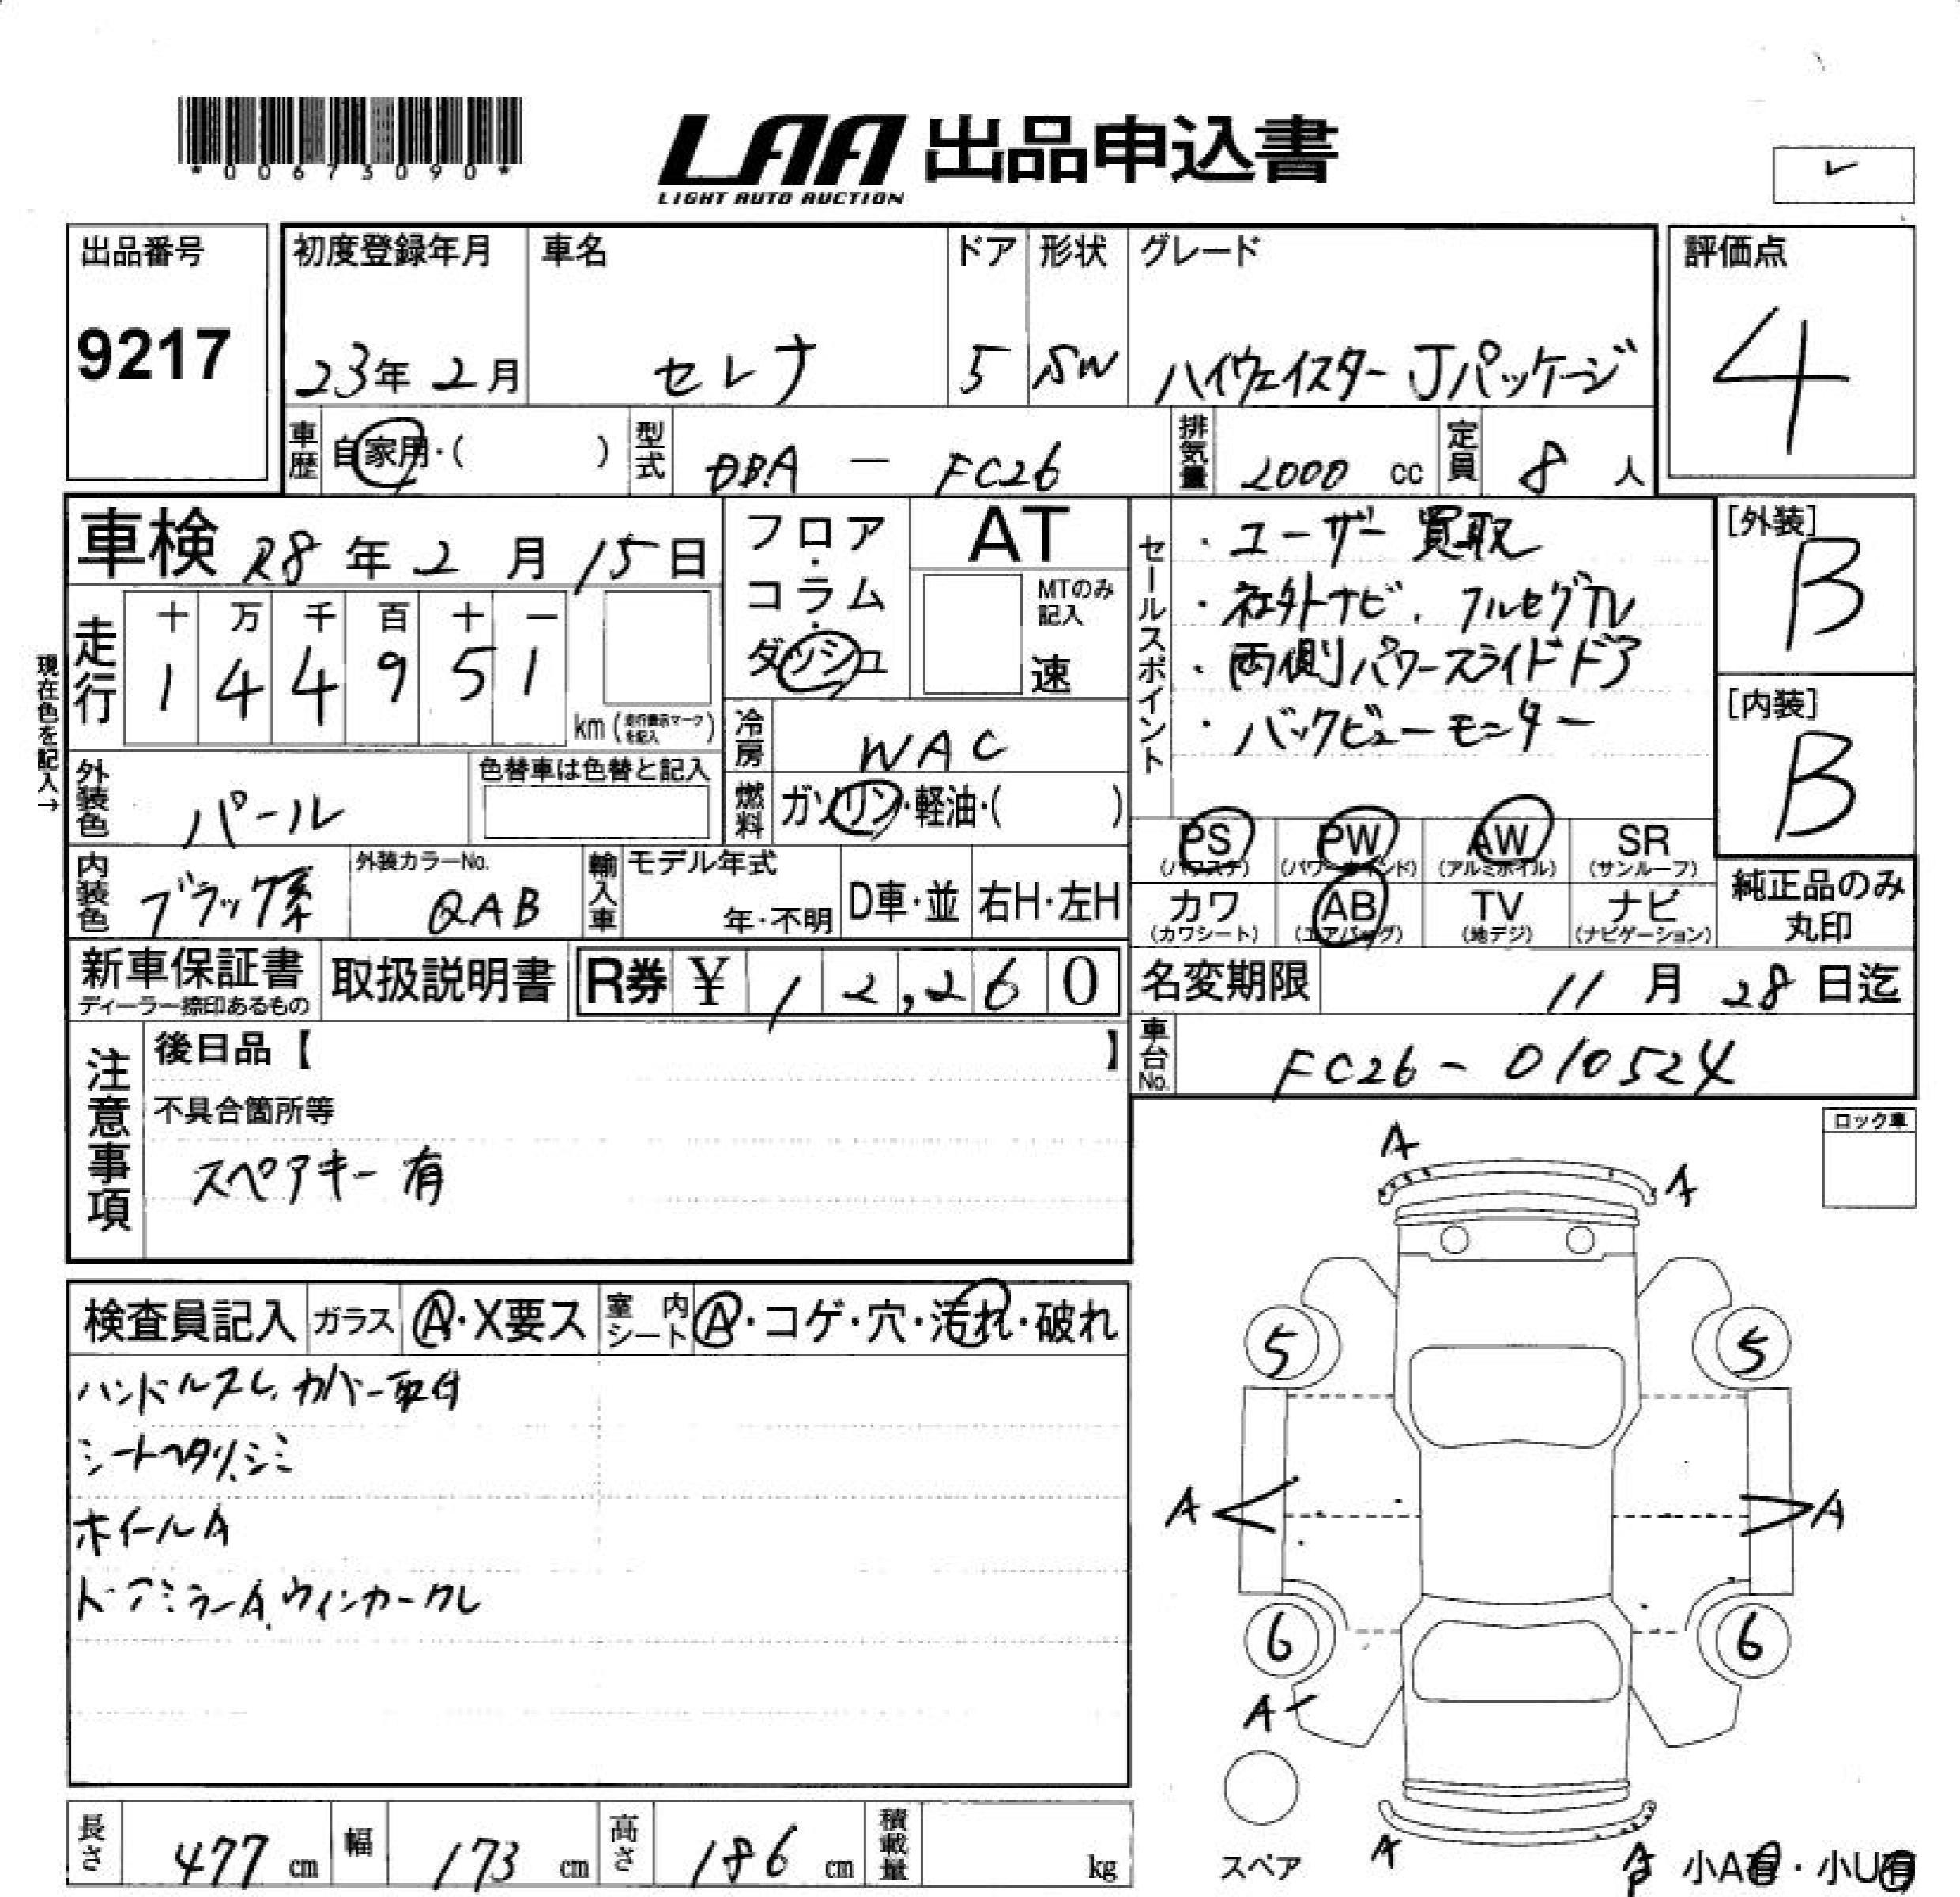 *00673090*
LAA 出品申込書
LIGHT AUTO AUCTION
レ
出品番号
9217
初度登録年月
23年 2月
車名
セレナ
ドア
5
形状
SW
グレード
ハイウェイスター Jパッケージ
評価点
4
車歴 自家用・( )
型式 DBA － FC26
排気量 2000 cc
定員 8 人
車検 28 年 2 月 15 日
フロア・コラム・ダッシュ
AT
MTのみ記入
速
走行
十 万 千 百 十 一
1 4 4 9 5 1
km (走行表示マークを記入)
現在色を記入→
冷房 WAC
外装色 パール
色替車は色替と記入
燃料 ガソリン・軽油・( )
内装色 ブラック系
外装カラーNo.
QAB
輸入車
モデル年式
年・不明
D車・並
右H・左H
セールスポイント
・ユーザー買取
・社外ナビ. フルセグTV
・両側パワースライドドア
・バックビューモニター
[外装]
B
[内装]
B
PS (パワステ)
PW (パワーウインド)
AW (アルミホイル)
SR (サンルーフ)
カワ (カワシート)
AB (エアバッグ)
TV (地デジ)
ナビ (ナビゲーション)
純正品のみ丸印
新車保証書
ディーラー捺印あるもの
取扱説明書
R券 ¥ 12,260
名変期限 11 月 28 日迄
車台No. FC26 - 010524
注意事項
後日品【 】
不具合箇所等
スペアキー有
ロック車
検査員記入
ガラス A・X要ス
室内シート A・コゲ・穴・汚れ・破れ
ハンドルスレ、カバー取付
シートヘタリ、シミ
ホイールA
ドアミラーA、ウィンカークレ
A
A
5
5
A
A
6
6
A
A
スペア
小A有・小U有
長さ 477 cm
幅 173 cm
高さ 186 cm
積載量 kg